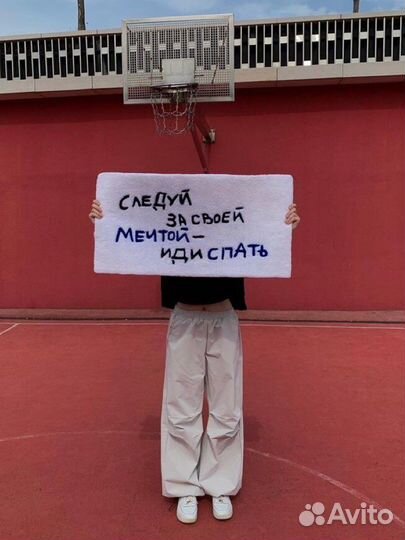 СЛЕДУЙ
ЗА СВОЕЙ
МЕЧТОЙ –
ИДИ СПАТЬ
Avito